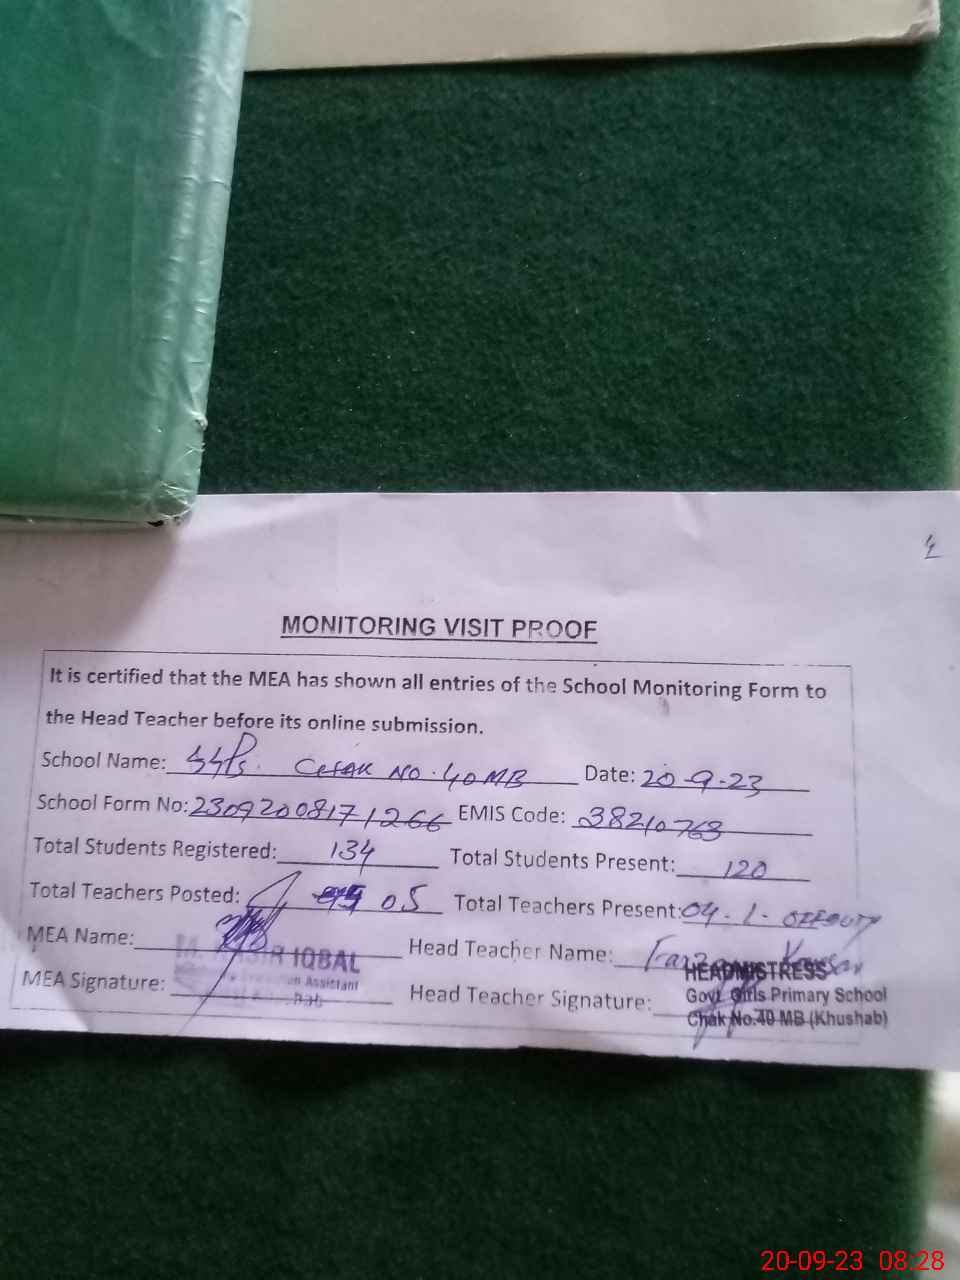 MONITORING VISIT PROOF
It is certified that the MEA has shown all entries of the School Monitoring Form to
the Head Teacher before its online submission.
School Name: GGPS. CHAK NO. 40 MB Date: 20-9-23
School Form No: 23092008171266 EMIS Code: 38210763
Total Students Registered: 134 Total Students Present: 120
Total Teachers Posted: 05 Total Teachers Present: 04-1-OFFDUTY
MEA Name: IQBAL Head Teacher Name: Kausar
Assistant
MEA Signature: Head Teacher Signature:
HEADMISTRESS
Govt. Girls Primary School
Chak No.40 MB (Khushab)
20-09-23 08:28